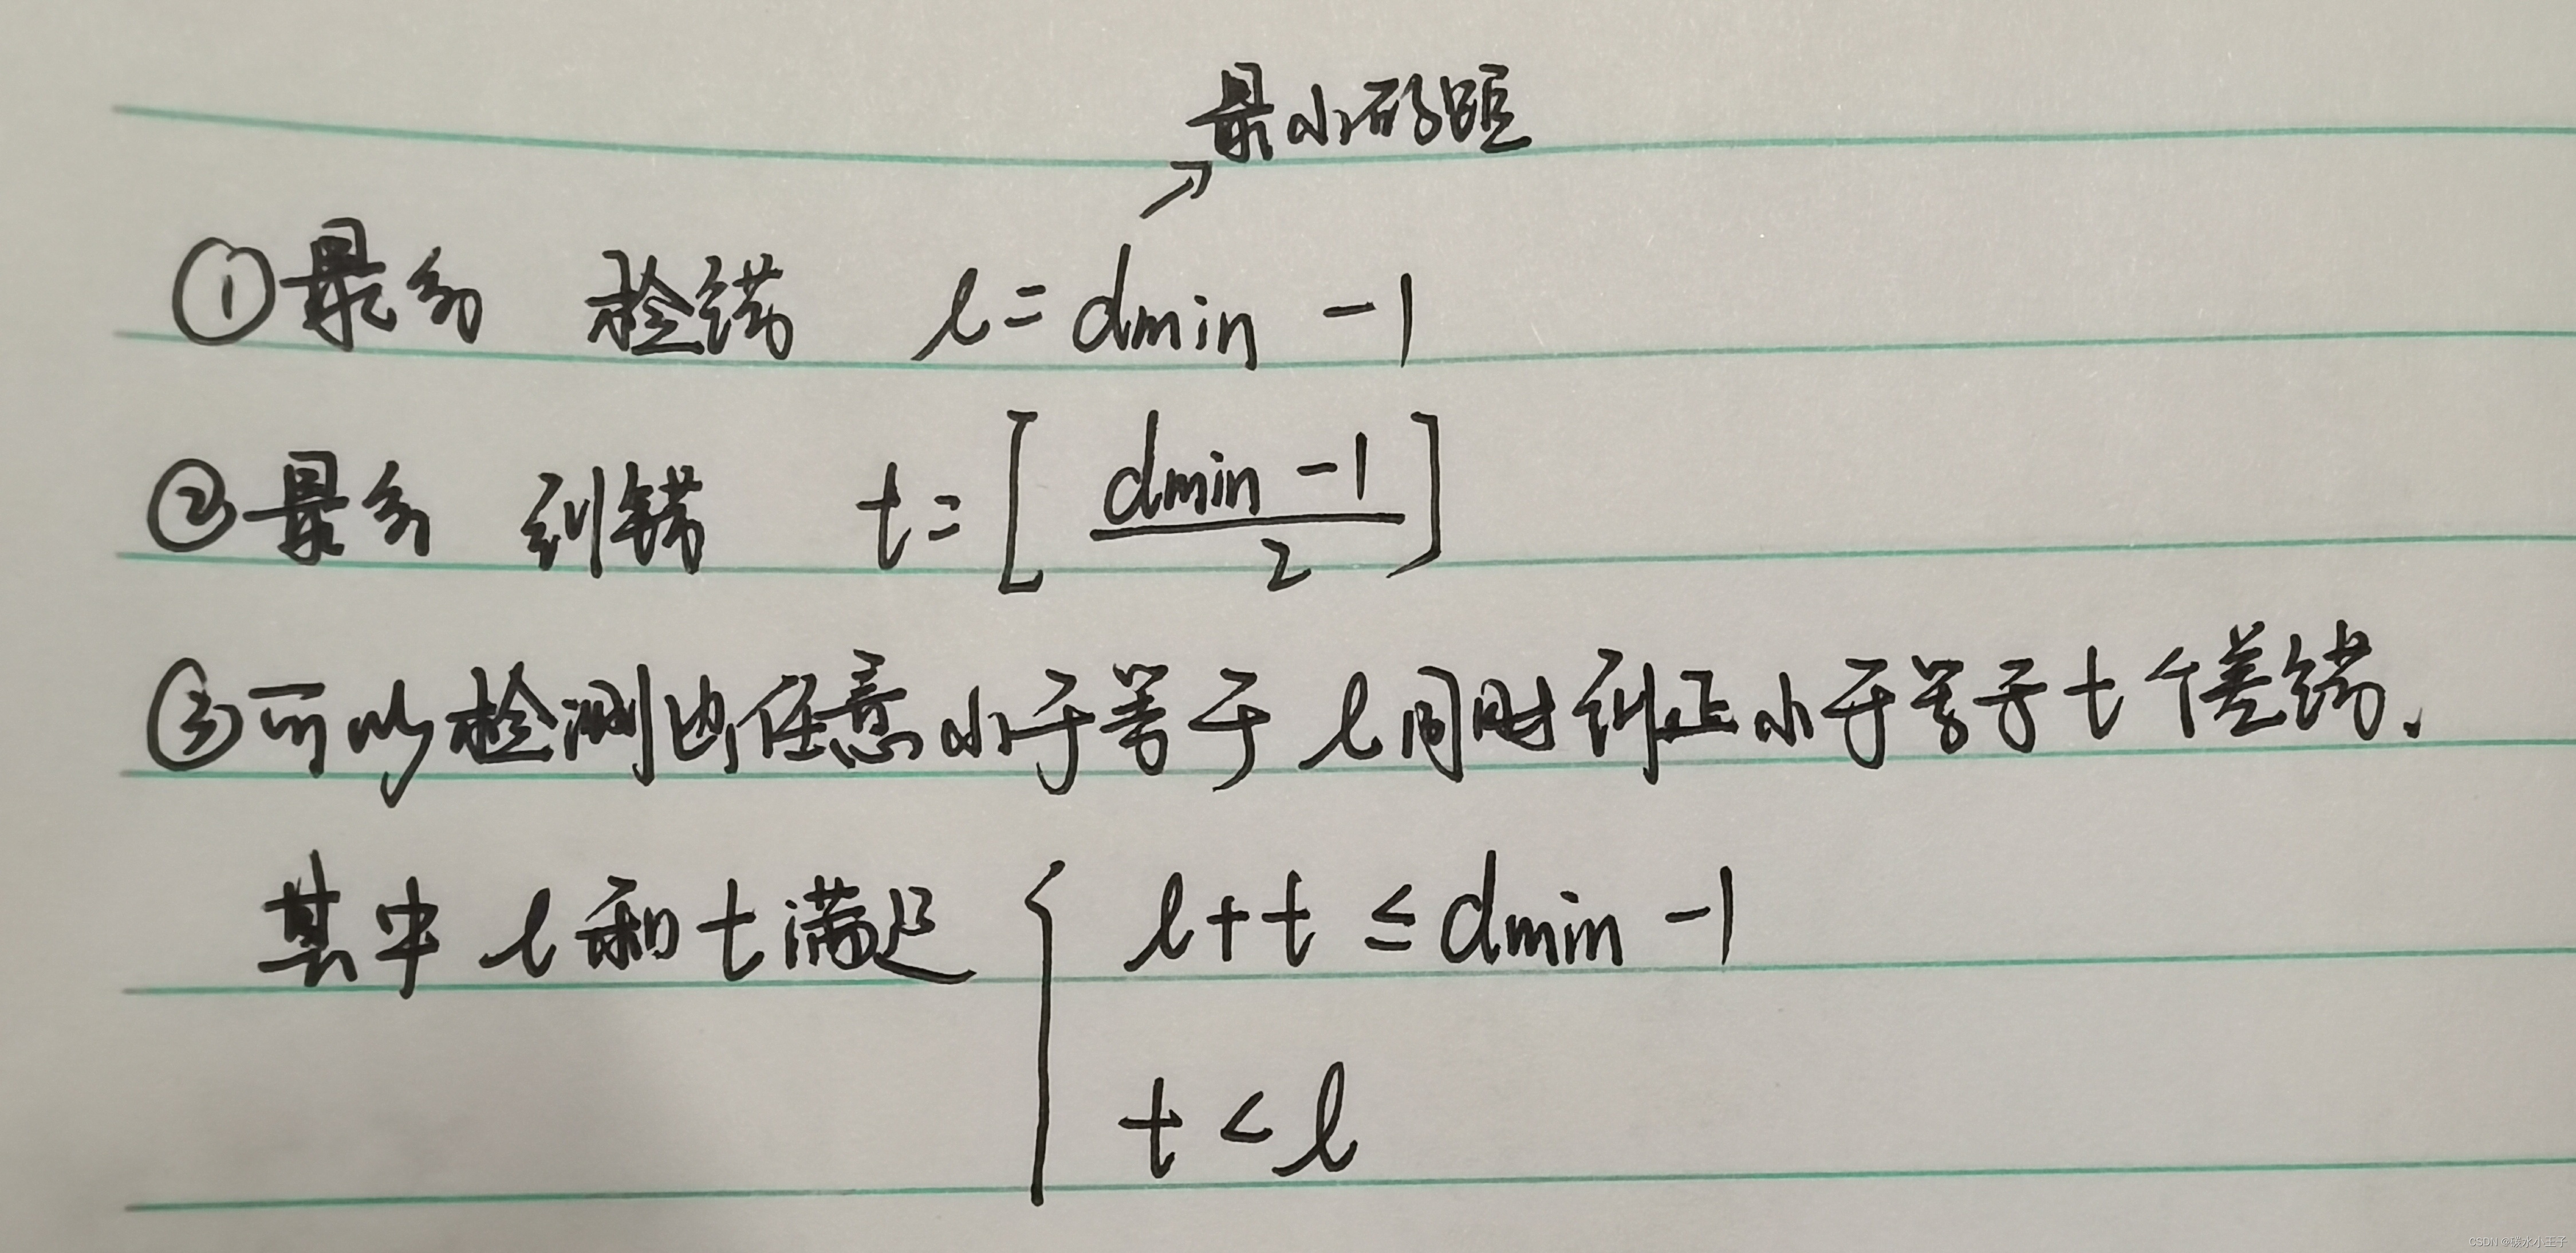 最小码距
①最多 检错 l = dmin -1
②最多 纠错 t = [ (dmin -1)/2 ]
③可以检测出任意小于等于 l 同时纠正小于等于 t 个差错.
其中 l 和 t 满足 { l+t ≤ dmin -1
t < l
CSDN @碳水小王子